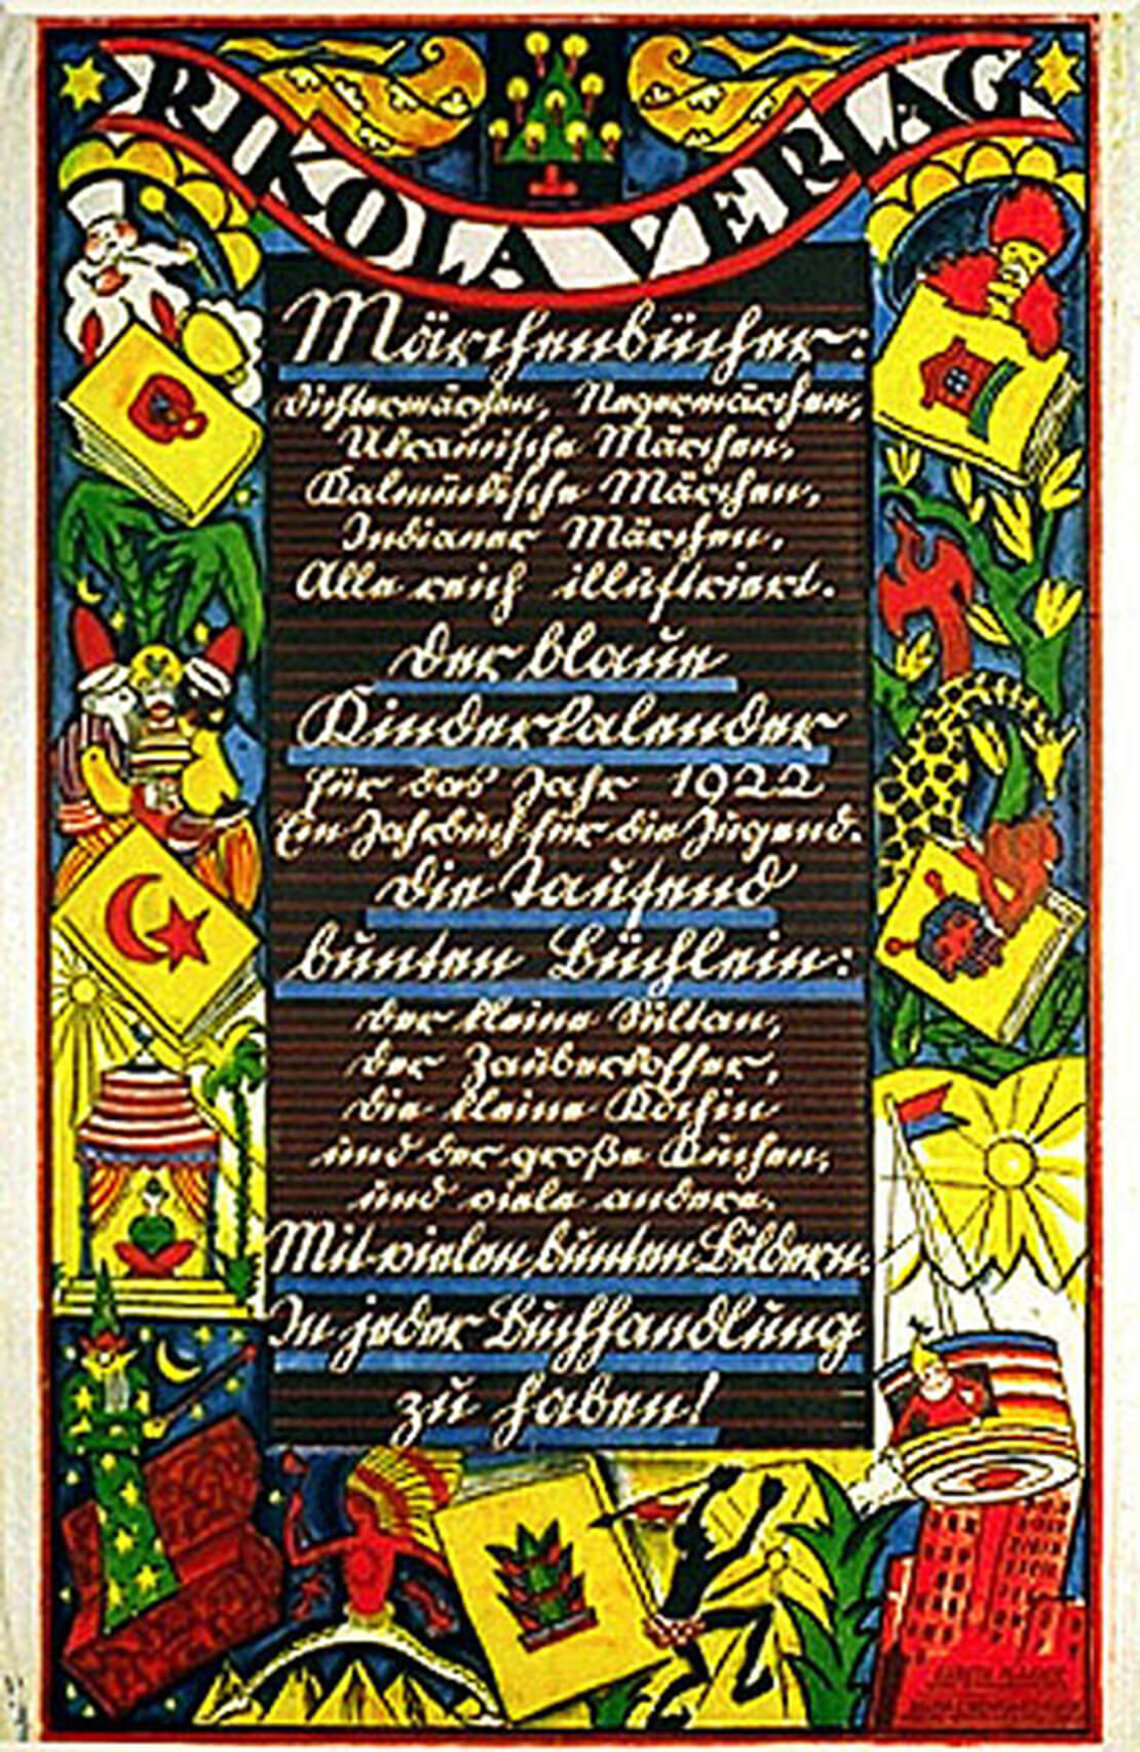 RIKOLA VERLAG
Märchenbücher:
Dichtermärchen, Negermärchen,
Ukrainische Märchen,
Kalmükische Märchen,
Indianer Märchen,
Alle reich illustriert.
Der blaue
Kinderkalender
für das Jahr 1922
Ein Jahrbuch für die Jugend.
Die Tausend
bunten Büchlein:
Der kleine Sultan,
Der Zauberkoffer,
Die kleine Köchin
und der große Kuchen,
und viele andere.
Mit vielen bunten Bildern.
In jeder Buchhandlung
zu haben!